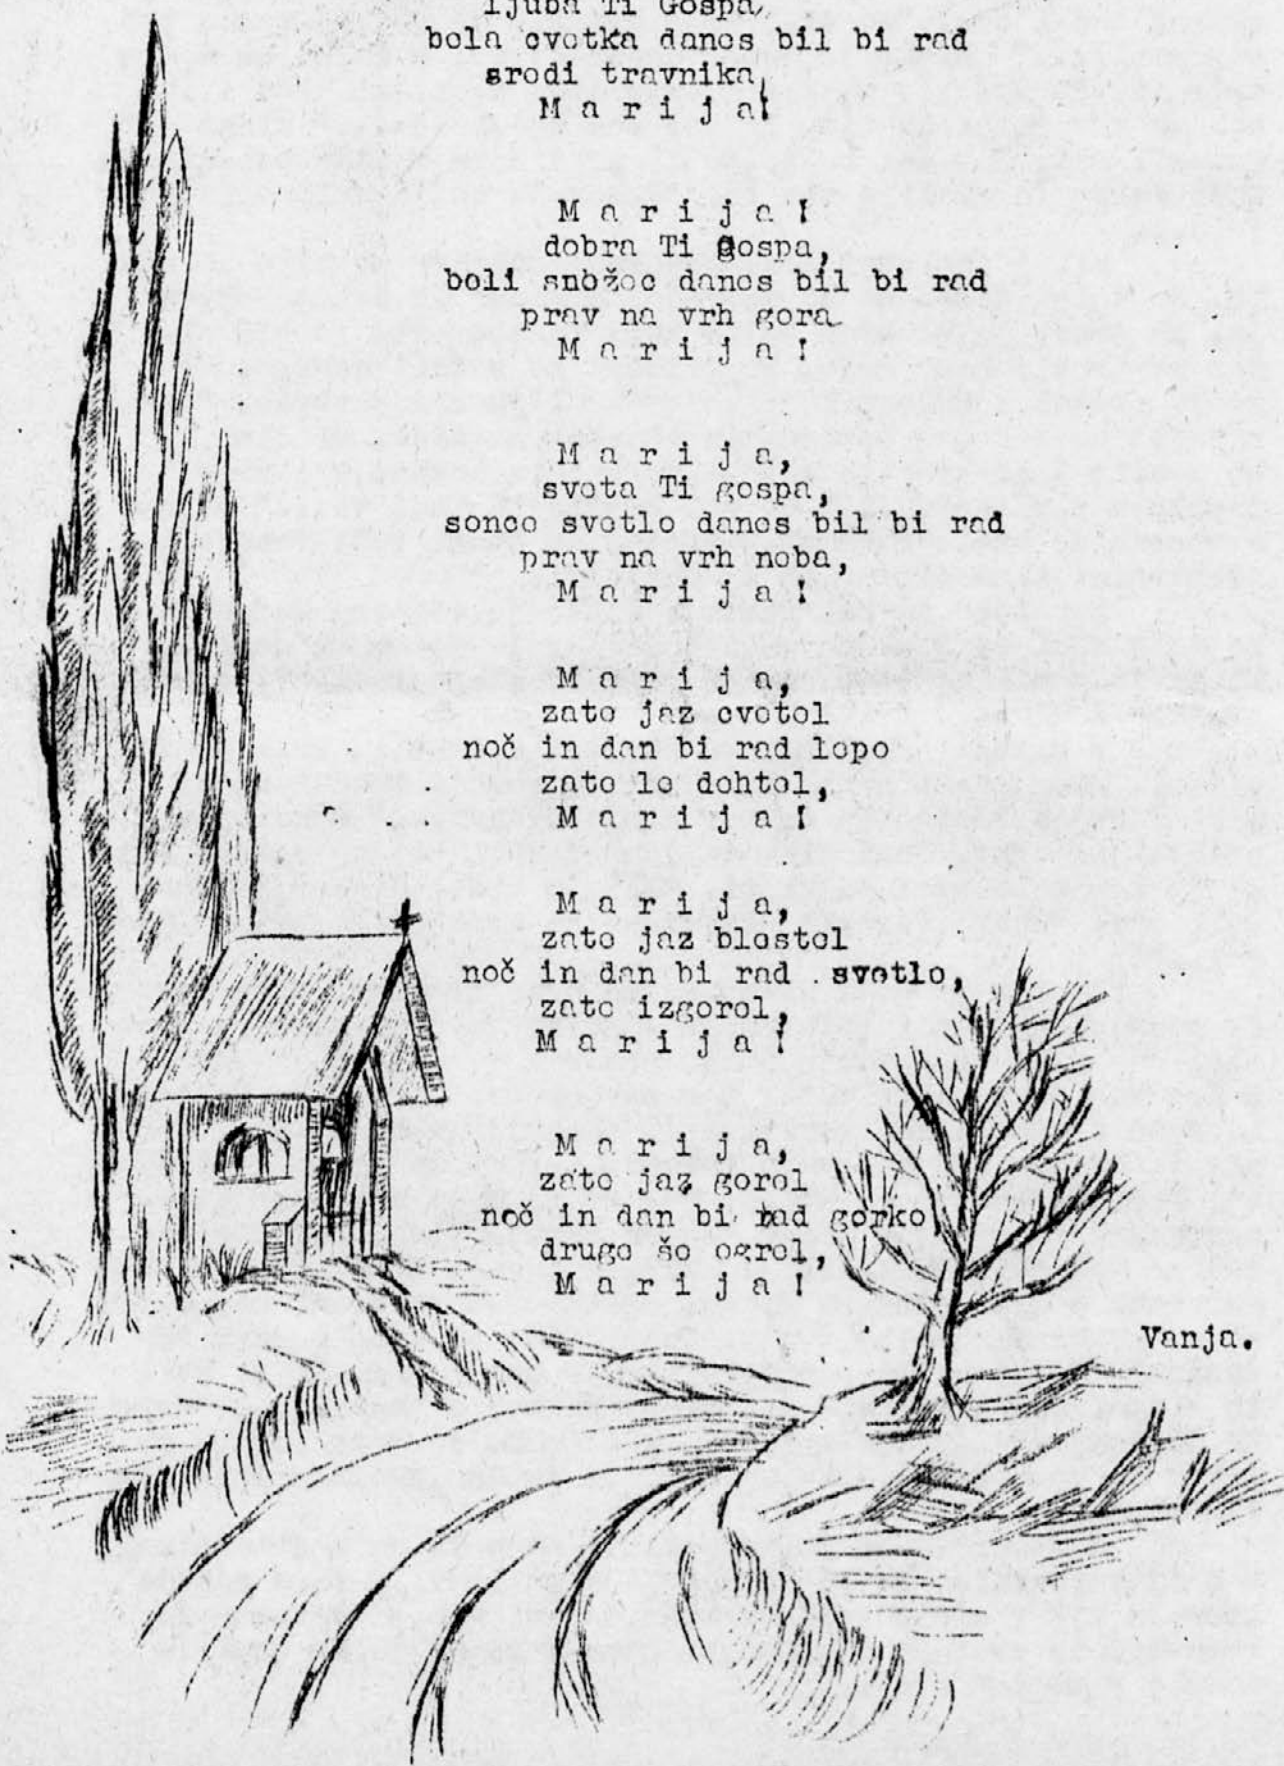 ljuba Ti Gospa,
bela cvetka danes bil bi rad
sredi travnika,
M a r i j a!
M a r i j a !
dobra Ti gospa,
beli snežec danes bil bi rad
prav na vrh gora
M a r i j a !
M a r i j a,
sveta Ti gospa,
sonce svetlo danes bil bi rad
prav na vrh neba,
M a r i j a !
M a r i j a,
zato jaz cvetel
noč in dan bi rad lepo
zate le dehtel,
M a r i j a !
M a r i j a,
zato jaz blestel
noč in dan bi rad svetlo,
zate izgorel,
M a r i j a !
M a r i j a,
zato jaz gorel
noč in dan bi rad gorko
druge še ogrel,
M a r i j a !
Vanja.